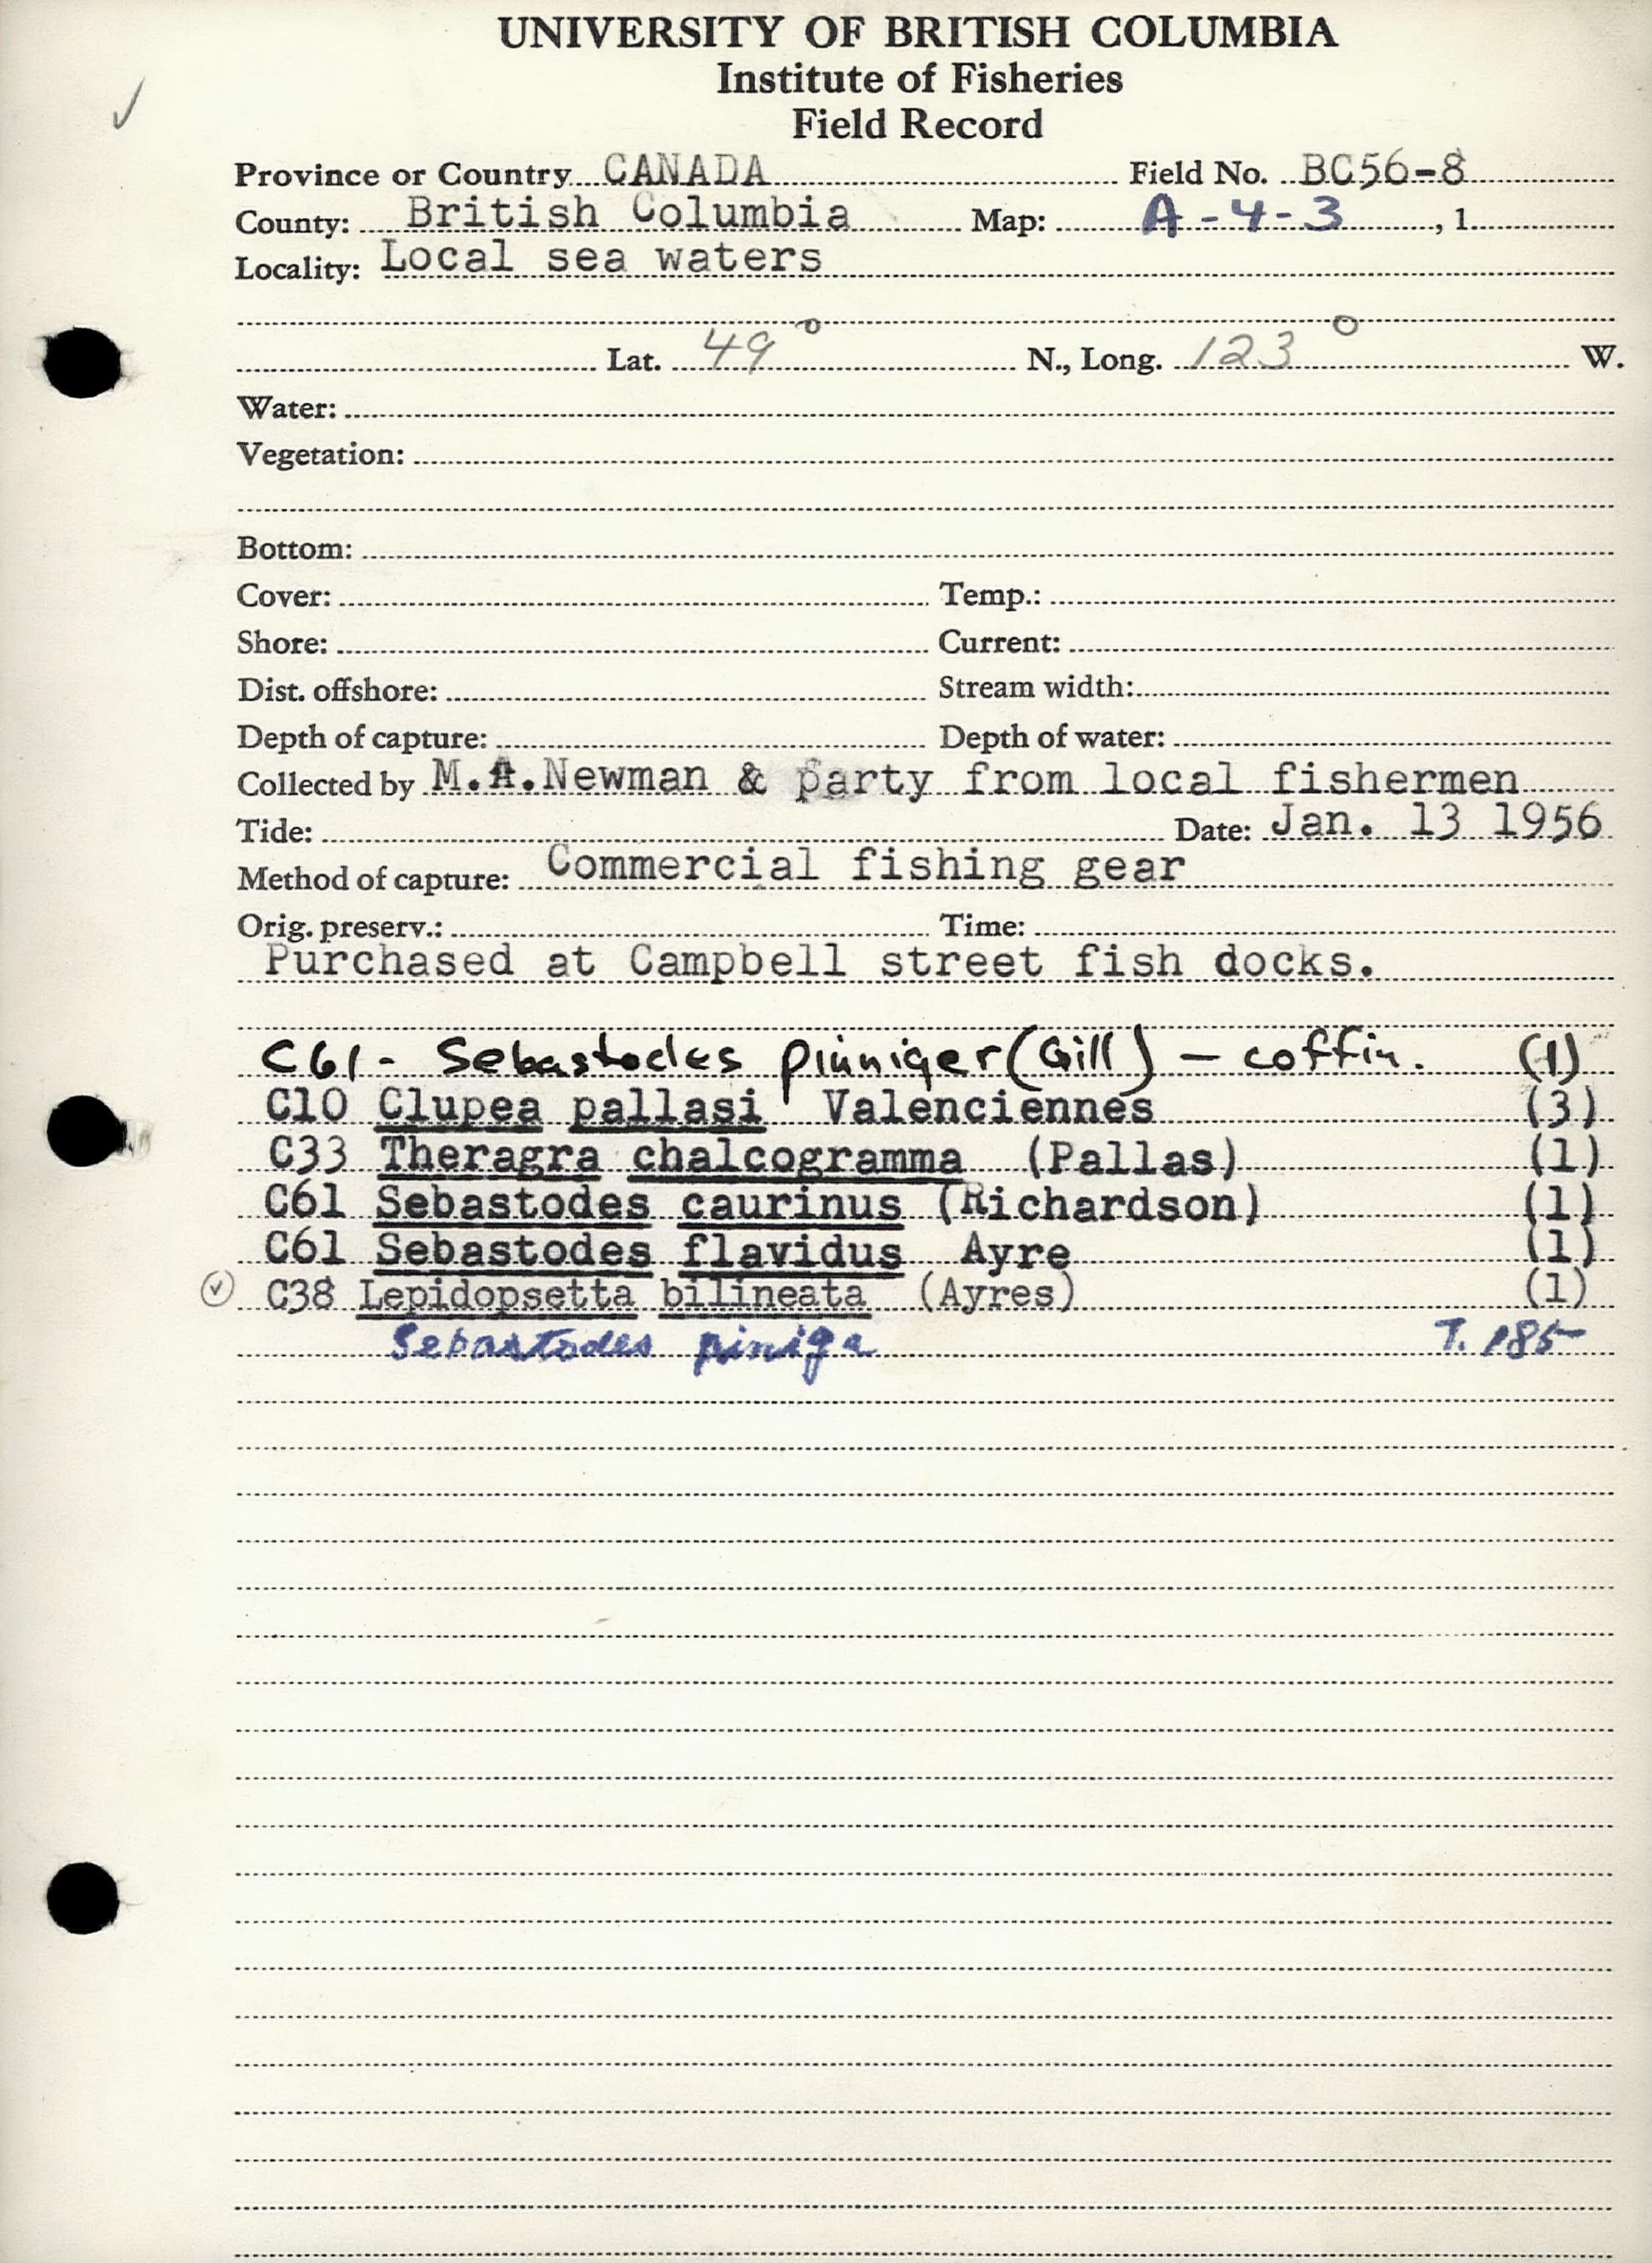 UNIVERSITY OF BRITISH COLUMBIA
Institute of Fisheries
Field Record
Province or Country CANADA Field No. BC56-8
County: British Columbia Map: A-4-3, 1
Locality: Local sea waters
Lat. 49° N., Long. 123° W.
Water:
Vegetation:
Bottom:
Cover: Temp.:
Shore: Current:
Dist. offshore: Stream width:
Depth of capture: Depth of water:
Collected by M.A.Newman & party from local fishermen
Tide: Date: Jan. 13 1956
Method of capture: Commercial fishing gear
Orig. preserv.: Time:
Purchased at Campbell street fish docks.
C61- Sebastodes pinniger (Gill) — coffin. (1)
C10 Clupea pallasi Valenciennes (3)
C33 Theragra chalcogramma (Pallas) (1)
C61 Sebastodes caurinus (Richardson) (1)
C61 Sebastodes flavidus Ayre (1)
C38 Lepidopsetta bilineata (Ayres) (1)
Sebastodes piniga T. 185